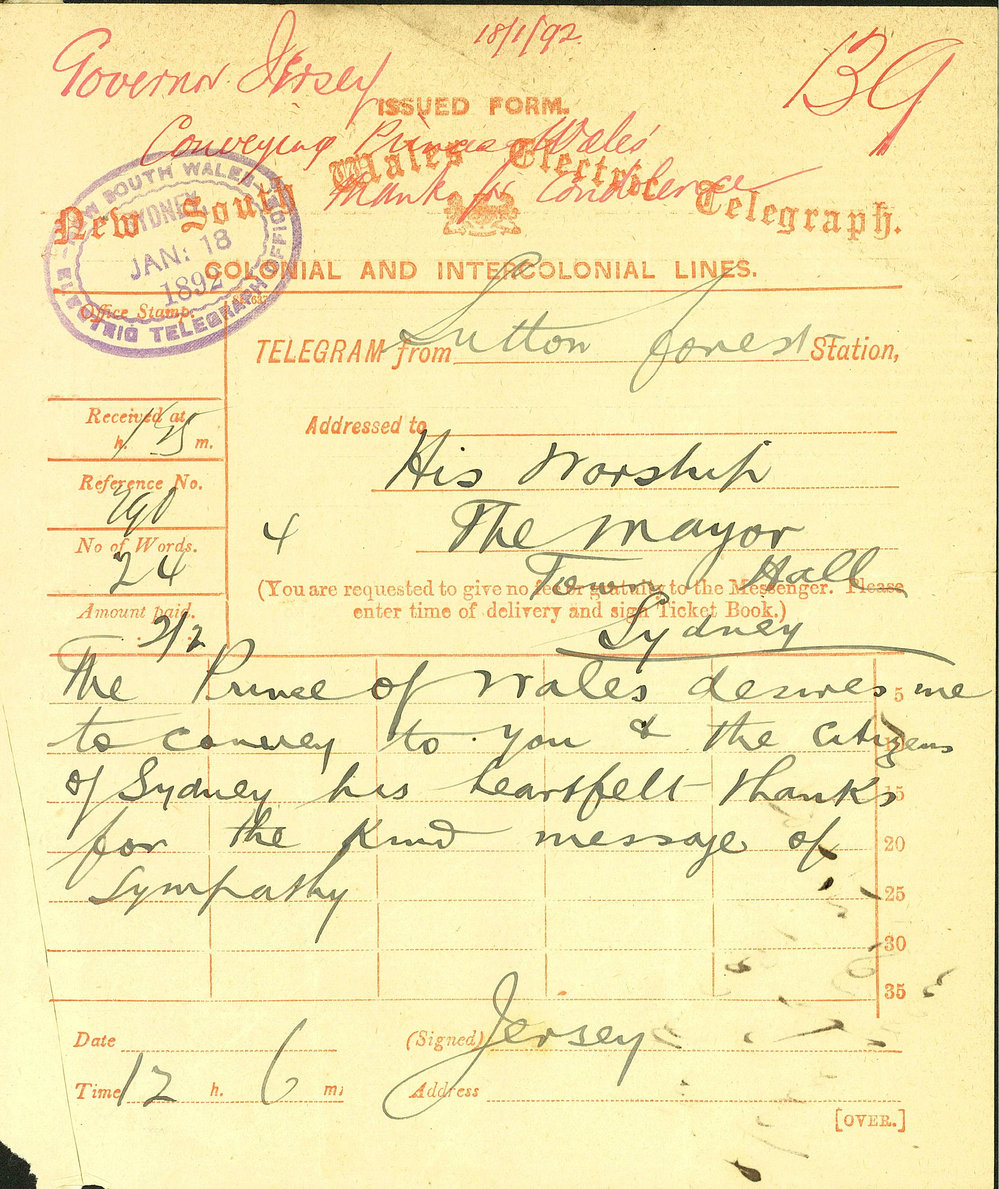 18/1/92
Governor Jersey
B9
ISSUED FORM.
Conveying Princes Wales'
thanks for Condolence
New South Wales Electric Telegraph.
NEW SOUTH WALES
SYDNEY
JAN: 18
1892
ELECTRIC TELEGRAPH OFFICE
COLONIAL AND INTERCOLONIAL LINES.
Office Stamp.
TELEGRAM from Sutton Forest Station,
Received at
h. 1.25 m.
Addressed to
His Worship
Reference No.
290
4 The Mayor
No of Words.
24
Town Hall
(You are requested to give no fee or gratuity to the Messenger. Please
enter time of delivery and sign Ticket Book.)
Sydney
Amount paid.
2/2
The Prince of Wales desires me
5
to convey to you & the citizens
10
of Sydney his heartfelt thanks
15
for the kind message of
20
sympathy
25
30
35
Date
(Signed) Jersey
Time 12 h. 6 m.
Address
[OVER.]